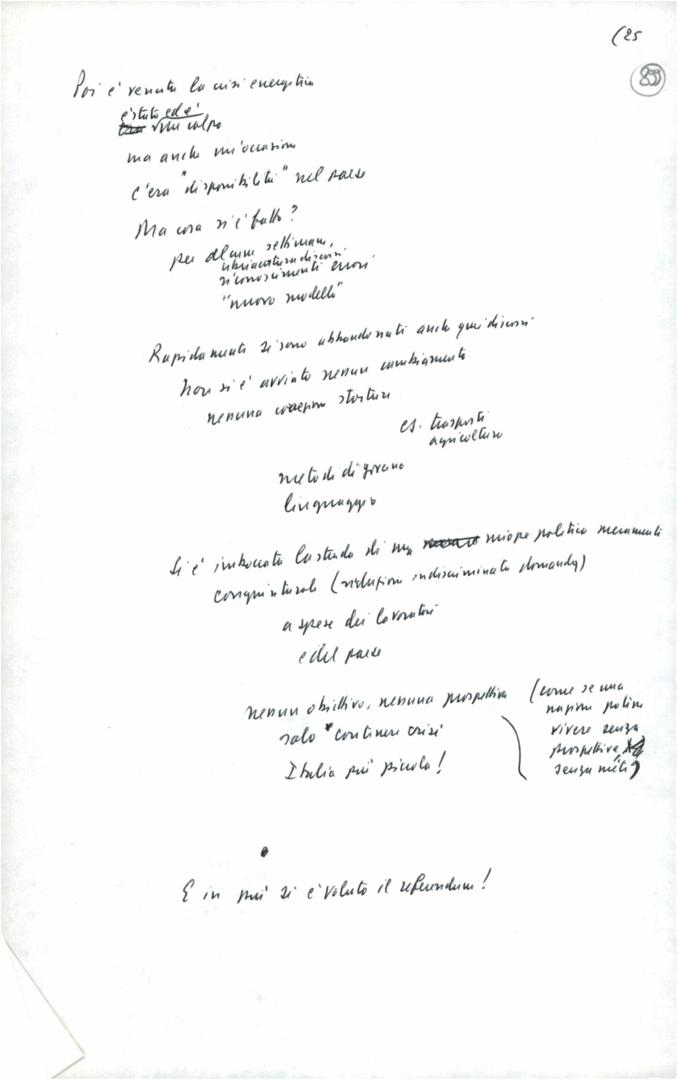 (25
Poi è venuta la crisi energetica
è stato ed è
un colpo
ma anche un'occasione
c'era "disponibilità" nel paese
Ma cosa si è fatto?
per alcune settimane,
ubriacatura discorsi
riconoscimenti errori
"nuovo modello"
Rapidamente si sono abbandonati anche quei discorsi
Non si è avviato nessun cambiamento
nessuna correzione storture
es. trasporti
agricoltura
metodi di governo
linguaggio
Si è imboccata la strada di una miope politica meramente
congiunturale (riduzione indiscriminata domanda)
a spese dei lavoratori
e del paese
nessun obiettivo, nessuna prospettiva
solo "contenere crisi
Italia più piccola!
(come se una
nazione potesse
vivere senza
prospettive,
senza mète)
E in più si è voluto il referendum!